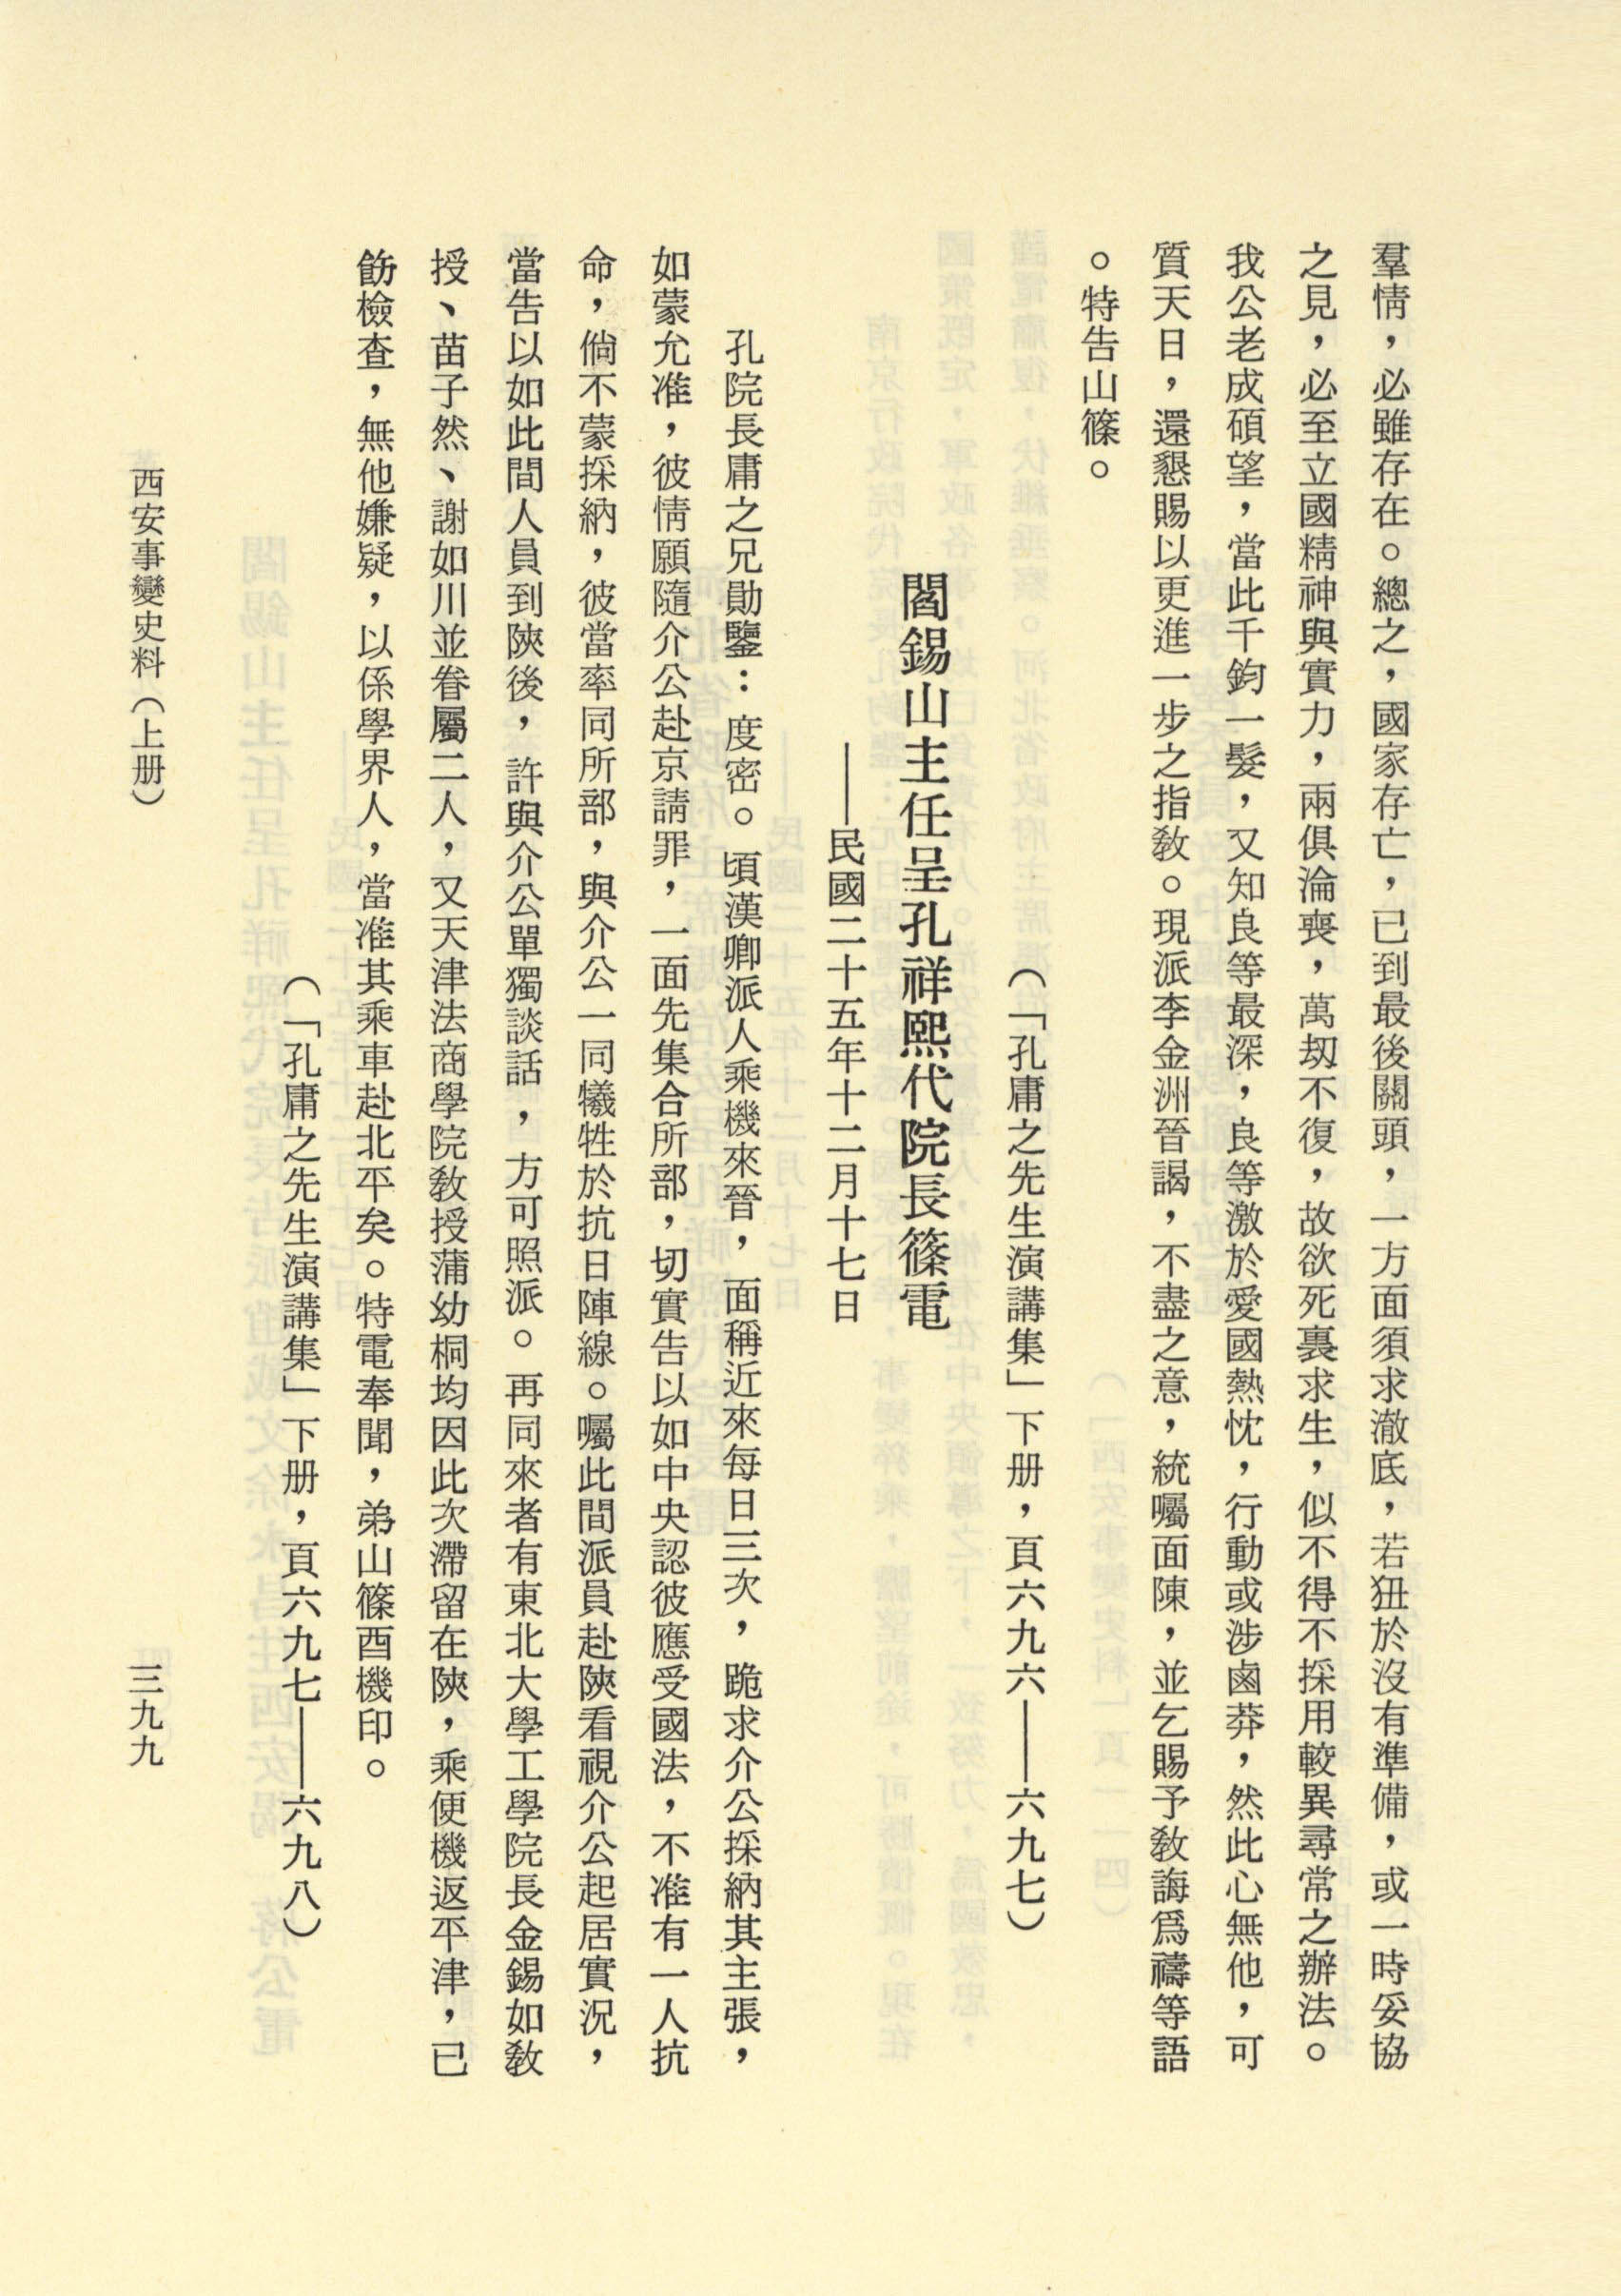 羣情，必雖存在。總之，國家存亡，已到最後關頭，一方面須求澈底，若狃於沒有準備，或一時妥協
之見，必至立國精神與實力，兩俱淪喪，萬刼不復，故欲死裏求生，似不得不採用較異尋常之辦法。
我公老成碩望，當此千鈞一髮，又知良等最深，良等激於愛國熱忱，行動或涉鹵莽，然此心無他，可
質天日，還懇賜以更進一步之指教。現派李金洲晉謁，不盡之意，統囑面陳，並乞賜予教誨爲禱等語
。特告山篠。
（「孔庸之先生演講集」下册，頁六九六——六九七）
閻錫山主任呈孔祥熙代院長篠電
——民國二十五年十二月十七日
孔院長庸之兄勛鑒：度密。頃漢卿派人乘機來晉，面稱近來每日三次，跪求介公採納其主張，
如蒙允准，彼情願隨介公赴京請罪，一面先集合所部，切實告以如中央認彼應受國法，不准有一人抗
命，倘不蒙採納，彼當率同所部，與介公一同犧牲於抗日陣線。囑此間派員赴陝看視介公起居實況，
當告以如此間人員到陝後，許與介公單獨談話，方可照派。再同來者有東北大學工學院長金錫如教
授、苗子然、謝如川並眷屬二人，又天津法商學院教授蒲幼桐均因此次滯留在陝，乘便機返平津，已
飭檢查，無他嫌疑，以係學界人，當准其乘車赴北平矣。特電奉聞，弟山篠酉機印。
（「孔庸之先生演講集」下册，頁六九七——六九八）
西安事變史料（上册）
三九九